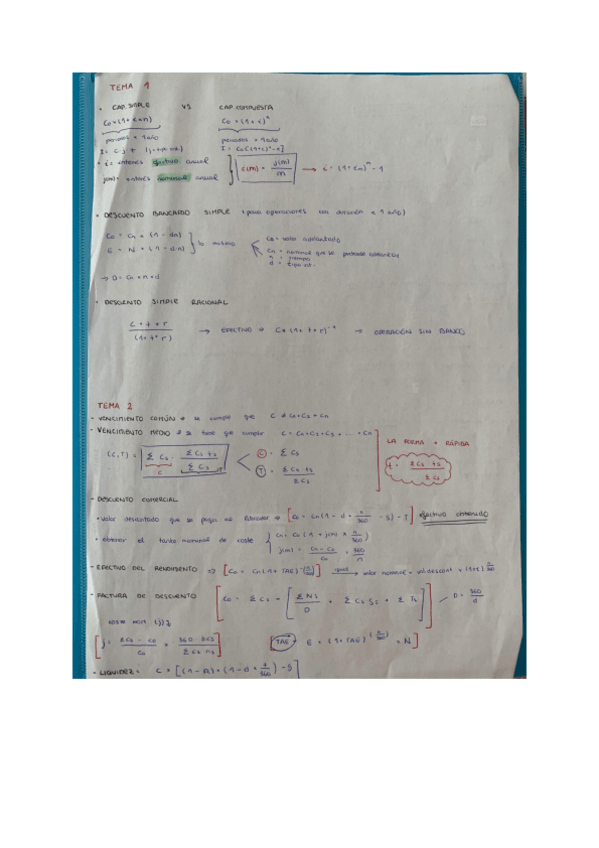 TEMA 1
- CAP. SIMPLE VS CAP. COMPUESTA
Co × (1 + i × n) Co × (1 + i)^n
periodos < 1 año periodos > 1 año
I = Co[(1+i)^n - 1]
- i = interés efectivo anual
j(m) = interés nominal anual
i(m) = j(m)/m → i = (1 + im)^m - 1
- DESCUENTO BANCARIO SIMPLE (para operaciones con duración < 1 año)
Co = Cn × (1 - dn)
E = N × (1 - d·n)
lo mismo
Co = valor descontado
Cn = nominal que se pretende
n = tiempo
d = tipo int.
→ D = Cn × n × d
- DESCUENTO SIMPLE RACIONAL
C × t × r / (1 + t × r) → EFECTIVO = C × (1 + t × r)^-1 → OPERACIÓN SIN BANCO
TEMA 2
- VENCIMIENTO COMÚN → se cumple que C ≠ C1 + C2 + Cn
- VENCIMIENTO MEDIO → se tiene que cumplir C = C1 + C2 + C3 + .... + Cn
LA FORMA + RÁPIDA
(C, T) = Σ Cs · Σ Cs ts / Σ Cs
C = Σ Cs
T = Σ Cs · ts / Σ Cs
t = Σ Cs ts / Σ Cs
- DESCUENTO COMERCIAL
• valor descontado que se paga al librador → [Co = Cn (1 - d × n/360 - s) - T] efectivo obtenido
• obtener el tanto nominal de coste
Cn = Co (1 + j(m) × n/360)
j(m) = Cn - Co / Co · 360/n
- EFECTIVO DEL RENDIMIENTO ⇒ [Co = Cn (1 + TAE)^-(n/360)]
- FACTURA DE DESCUENTO [Co = Σ Cs - [Σ Ns / D + Σ Cs gs + Σ Ts]] D = 360/d
TAE E × (1 + TAE)^(n/360) = N
- LIQUIDEZ = C × [(1 - R) × (1 - d × n/360) - s]